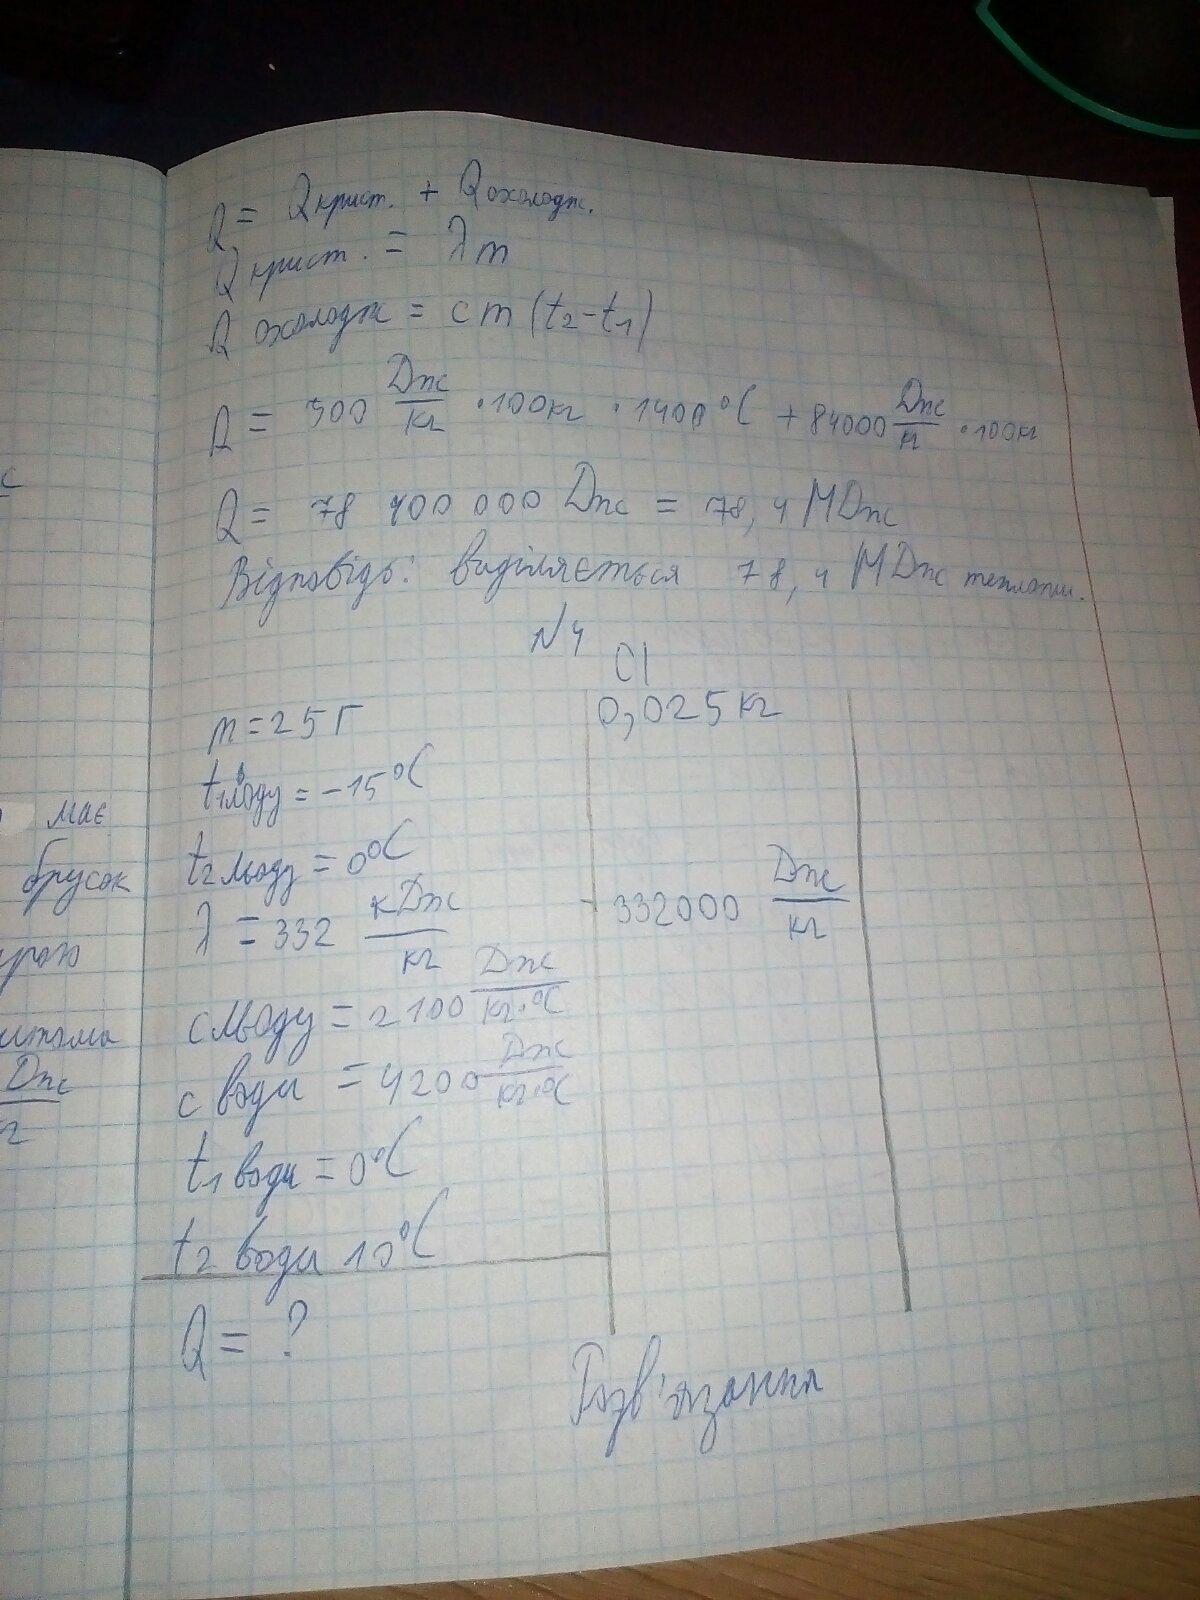 Q = Qкрист. + Qохолодж.
Qкрист. = λm
Qохолодж = cm(t2-t1)
Q = 500 Дж/кг · 100кг · 1400°C + 84000 Дж/кг · 100кг
Q = 78 400 000 Дж = 78,4 МДж
Відповідь: виділяється 78,4 МДж теплоти.
N4
СІ
m = 25 г 0,025 кг
t1льоду = -15°C
t2льоду = 0°C
λ = 332 кДж/кг 332000 Дж/кг
cльоду = 2100 Дж/кг·°C
c води = 4200 Дж/кг·°C
t1 води = 0°C
t2 води 10°C
Q = ?
Розв'язання
с
має
брусок
Дж